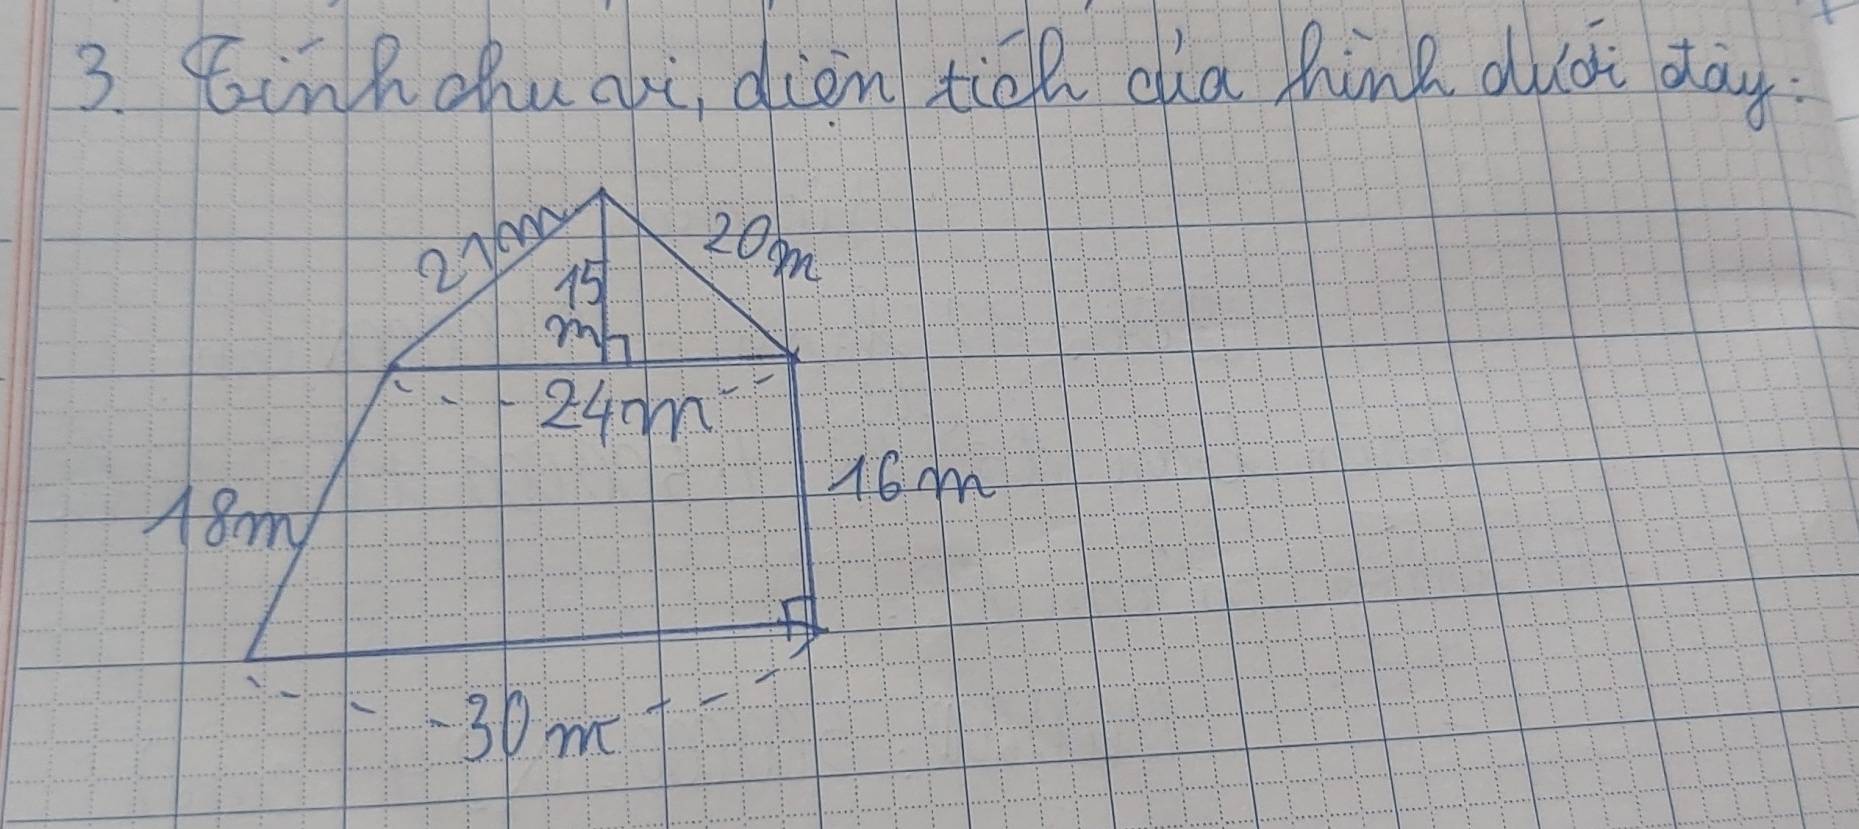 3. Tính chu vi, diện tích của hình dưới đây:
21m
20m
15
m
24m
18m
16m
30m